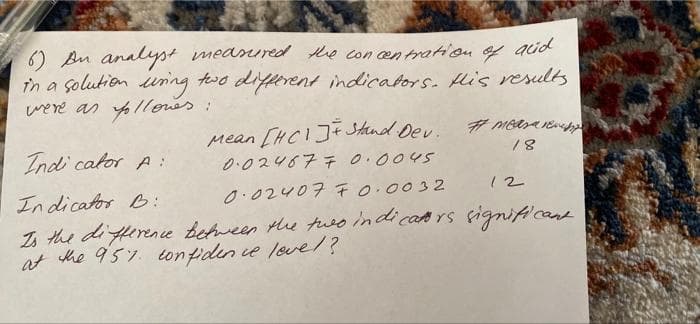 6) An analyst measured the concentration of acid
in a solution using two different indicators. His results
were as follows :
Mean [HCl] ∓ Stand Dev. # measurements
Indicator A : 0.02467 ∓ 0.0045 18
Indicator B: 0.02407 ∓ 0.0032 12
Is the difference between the two indicators significant
at the 95% confidence level?